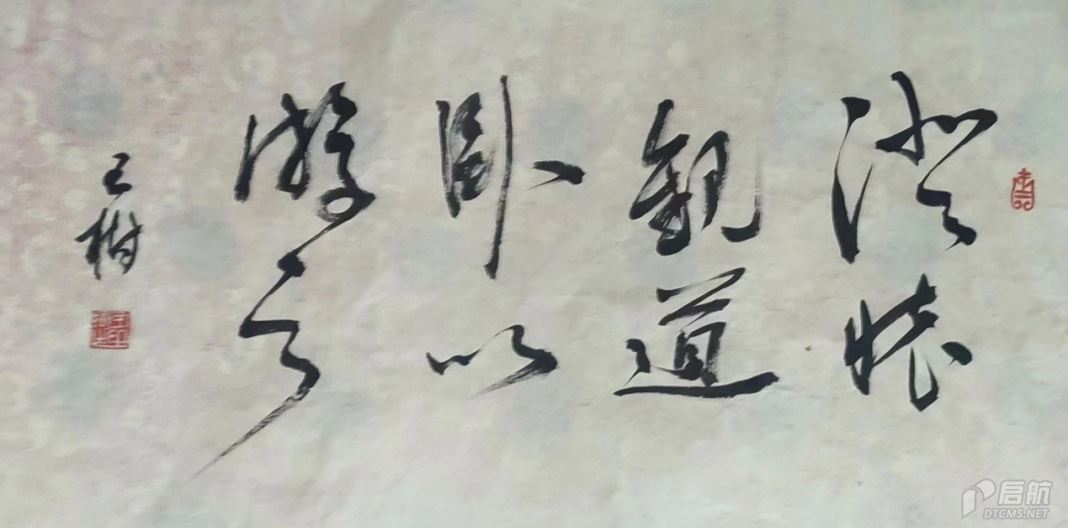 澄懷
觀道
卧以
游之
王樹
启航
DTCMS.NET